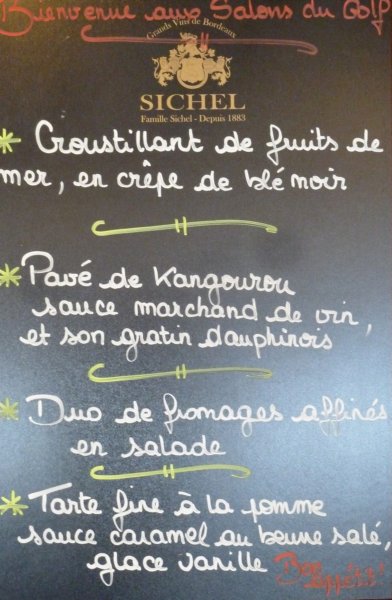 Bienvenue aux Salons du Golf
Grands Vins de Bordeaux
SICHEL
Famille Sichel - Depuis 1883
* Croustillant de fruits de
mer, en crêpe de blé noir
* Pavé de Kangourou
sauce marchand de vin,
et son gratin dauphinois
* Duo de fromages affinés
en salade
* Tarte fine à la pomme
sauce caramel au beurre salé,
glace vanille
Bon
appétit!